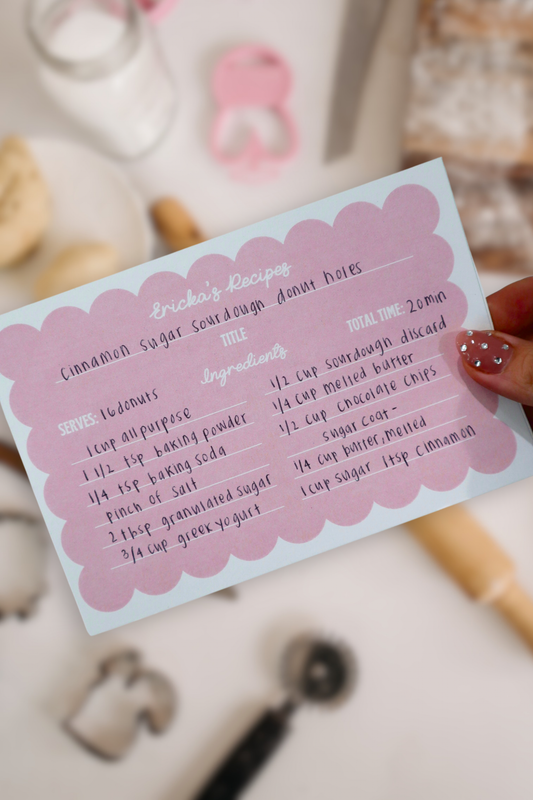 Ericka's Recipes
Cinnamon sugar sourdough donut holes
TITLE
SERVES: 16 donuts
TOTAL TIME: 20 min
Ingredients
1 cup all purpose
1 1/2 tsp baking powder
1/4 tsp baking soda
pinch of salt
2 tbsp granulated sugar
3/4 cup greek yogurt
1/2 cup sourdough discard
1/4 cup melted butter
1/2 cup chocolate chips
sugar coat-
1/4 cup butter, melted
1 cup sugar 1 tsp cinnamon